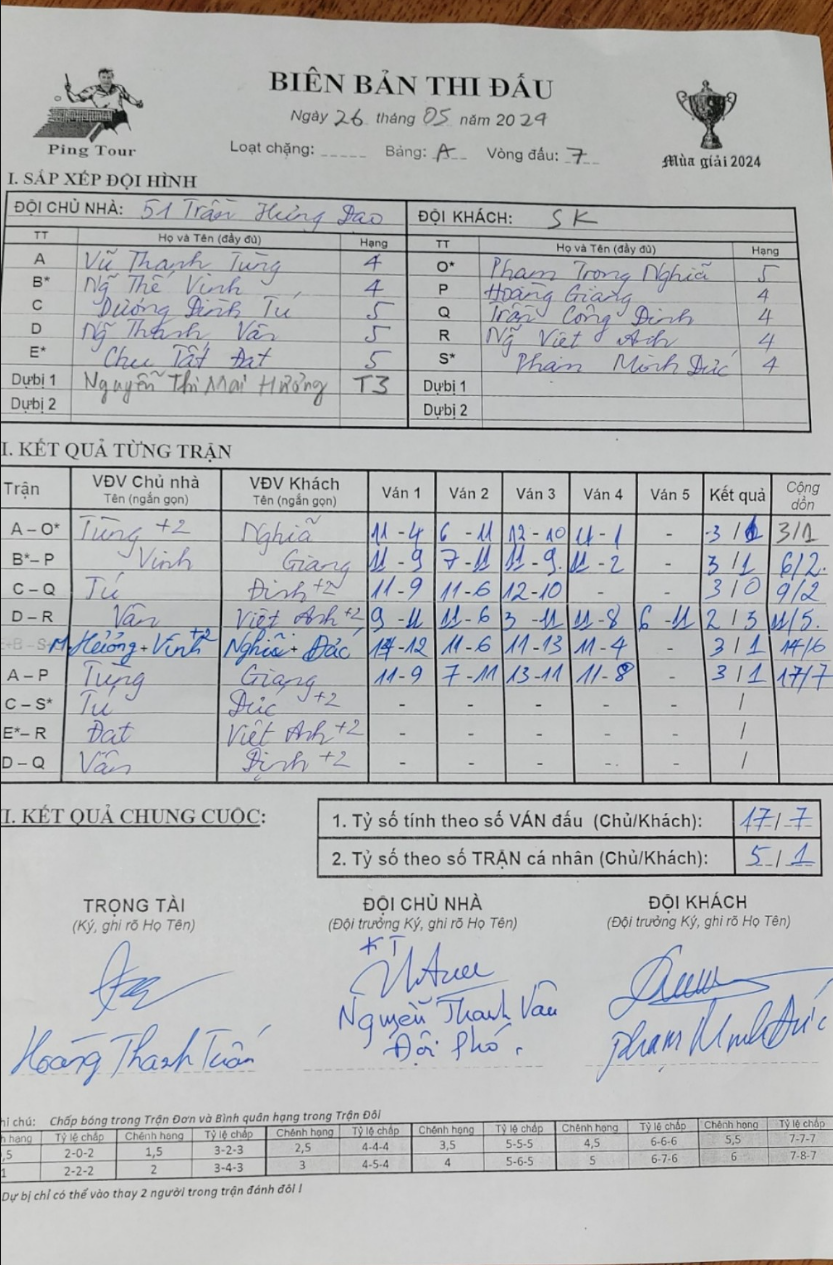 BIÊN BẢN THI ĐẤU
Ngày 26 tháng 05 năm 2024
Ping Tour
Loạt chặng: Bảng: A Vòng đấu: 7
Mùa giải 2024
I. SẮP XẾP ĐỘI HÌNH
ĐỘI CHỦ NHÀ: 51 Trần Hưng Đạo ĐỘI KHÁCH: SK
TT Họ và Tên (đầy đủ) Hạng TT Họ và Tên (đầy đủ) Hạng
A Vũ Thanh Tùng 4 O* Phạm Trọng Nghĩa 5
B* Ng Thế Vinh 4 P Hoàng Giang 4
C Dương Đình Tú 5 Q Trần Công Định 4
D Ng Thanh Vân 5 R Ng Việt Anh 4
E* Chu Tất Đạt 5 S* Phạm Minh Đức 4
Dự bị 1 Nguyễn Thị Mai Hương T3 Dự bị 1
Dự bị 2 Dự bị 2
I. KẾT QUẢ TỪNG TRẬN
Trận VĐV Chủ nhà Tên (ngắn gọn) VĐV Khách Tên (ngắn gọn) Ván 1 Ván 2 Ván 3 Ván 4 Ván 5 Kết quả Cộng dồn
A – O* Tùng +2 Nghĩa 11 - 4 6 - 11 12 - 10 11 - 1 - 3 / 1 3/1
B*– P Vinh Giang 11 - 9 7 - 11 11 - 9 11 - 2 - 3 / 1 6/2
C – Q Tú Định +2 11 - 9 11 - 6 12 - 10 - - 3 / 0 9/2
D – R Vân Việt Anh +2 9 - 11 11 - 6 3 - 11 11 - 8 6 - 11 2 / 3 11/5
M Hương + Vinh +2 Nghĩa + Đức 14 - 12 11 - 6 11 - 13 11 - 4 - 3 / 1 14/6
A – P Tùng Giang 11 - 9 7 - 11 13 - 11 11 - 8 - 3 / 1 17/7
C – S* Tú Đức +2 - - - - - /
E*– R Đạt Việt Anh +2 - - - - - /
D – Q Vân Định +2 - - - - - /
I. KẾT QUẢ CHUNG CUỘC:
1. Tỷ số tính theo số VÁN đấu (Chủ/Khách): 17 / 7
2. Tỷ số theo số TRẬN cá nhân (Chủ/Khách): 5 / 1
TRỌNG TÀI ĐỘI CHỦ NHÀ ĐỘI KHÁCH
(Ký, ghi rõ Họ Tên) (Đội trưởng Ký, ghi rõ Họ Tên) (Đội trưởng Ký, ghi rõ Họ Tên)
KT
Hoàng Thanh Tuấn Nguyễn Thanh Vân Phạm Minh Đức
Đội Phó.
hi chú: Chấp bóng trong Trận Đơn và Bình quân hạng trong Trận Đôi
h hạng Tỷ lệ chấp Chênh hạng Tỷ lệ chấp Chênh hạng Tỷ lệ chấp Chênh hạng Tỷ lệ chấp Chênh hạng Tỷ lệ chấp Chênh hạng Tỷ lệ chấp
,5 2-0-2 1,5 3-2-3 2,5 4-4-4 3,5 5-5-5 4,5 6-6-6 5,5 7-7-7
1 2-2-2 2 3-4-3 3 4-5-4 4 5-6-5 5 6-7-6 6 7-8-7
Dự bị chỉ có thể vào thay 2 người trong trận đánh đôi !